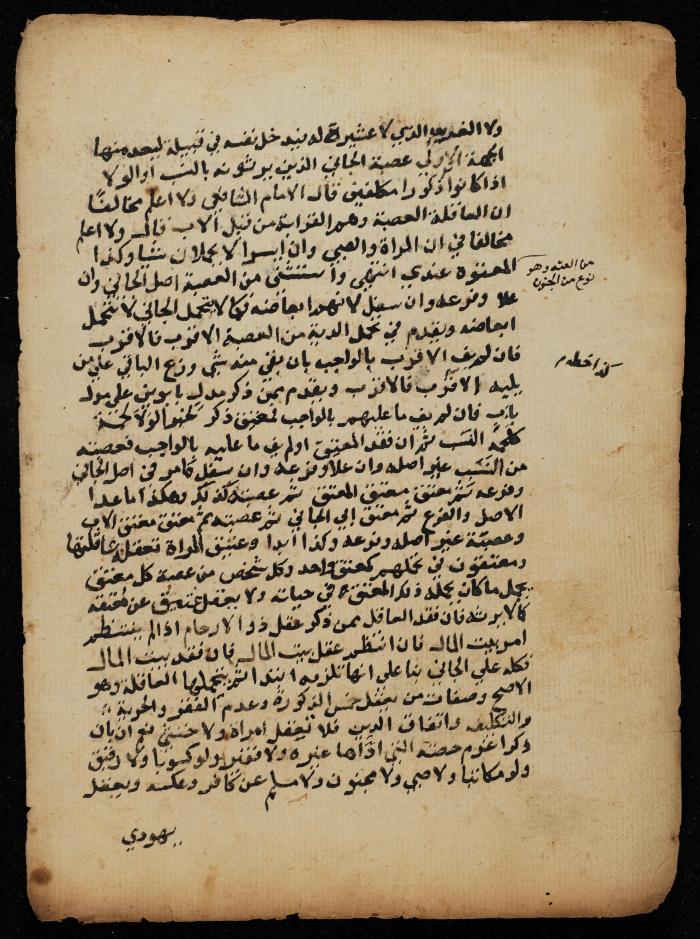 ولا الغريب الذي لا عشيرة له فيدخل نفسه في قبيلة ليعد منها
الجهة الاولي عصبة الجاني الذين يرثونه بالنسب او الولا
اذا كانوا ذكورا مكلفين قال الامام الشافعي ولا اعلم مخالفا
ان العاقلة العصبة وهم القرابة من قبل الاب قال ولا اعلم
مخالفا في ان المراة والصبي وان ايسرا لا يحملان شيا وكذا
المعتوه عندي انتهي واستثني من العصبة اصل الجاني وان
من العته وهو
نوع من الجنون
علا وفرعه وان سفل لانهم ابعاضه فكما لا يتحمل الجاني لا تتحمل
ابعاضه ويقدم في تحمل الدية من العصبة الاقرب فالاقرب
فان لم يف الاقرب بالواجب بان بقي منه شي وزع الباقي علي من
يليه الاقرب فالاقرب ويقدم ممن ذكر مدل بابوين علي مدل
كذا بخطه
باب فان لم يف ما عليهم بالواجب فمعتق ذكر لخبر الولا لحمة
كلحمة النسب ثم ان فقد المعتق او لم يف ما عليه بالواجب فعصبته
من النسب غير اصله وان علا وفرعه وان سفل كما مر في اصل الجاني
وفرعه ثم معتق معتق المعتق ثم عصبته كذلك وهكذا ما عدا
الاصل والفرع ثم معتق ابي الجاني ثم عصبته ثم معتق معتق الاب
وعصبته غير اصله وفرعه وكذا ابدا وعتيق المراة تعقله عاقلتها
ومعتقون في تحملهم كمعتق واحد وكل شخص من عصبة كل معتق
يحمل ما كان يحمله ذلك المعتق في حياته ولا يعقل عتيق عن معتقه
كما لا يرثه فان فقد العاقل ممن ذكر عقل ذوا الارحام اذا لم ينتظم
امر بيت المال فان انتظم عقل بيت المال فان فقد بيت المال
فكله علي الجاني بنا علي انها تلزمه ابتدا ثم يتحملها العاقلة وهو
الاصح وصفات من يعقل خمس الذكورة وعدم الفقر والحرية
والتكليف واتفاق الدين فلا تعقل امراة ولا خنثي نعم ان بان
ذكرا غرم حصته التي اداها غيره ولا فقير ولو كسوبا ولا رقيق
ولو مكاتبا ولا صبي ولا مجنون ولا مسلم عن كافر وعكسه ويعقل
يهودي